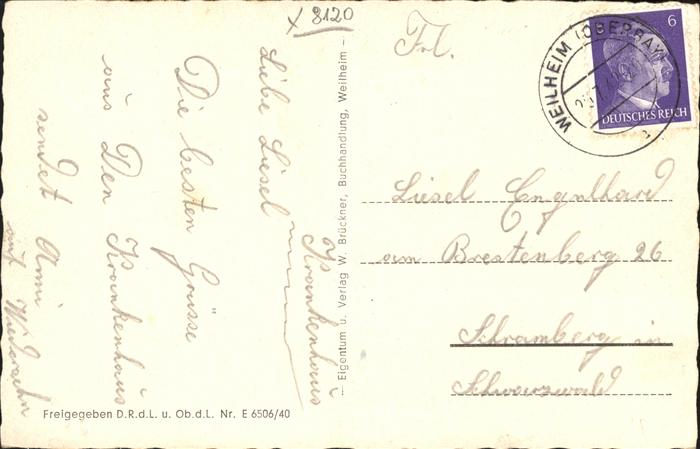 x 8120
Krankenhaus
Liebe Liesel
Die besten Grüsse
aus Den Krankenhaus
sendet
Freigegeben D.R.d.L. u. Ob.d.L. Nr. E 6506/40
— Eigentum u. Verlag W. Brückner, Buchhandlung, Weilheim —
Frl.
WEILHEIM (OBERBAY)
6
DEUTSCHES REICH
Liesel Engelhard
am Brestenberg 26
Schramberg in
Schwarzwald